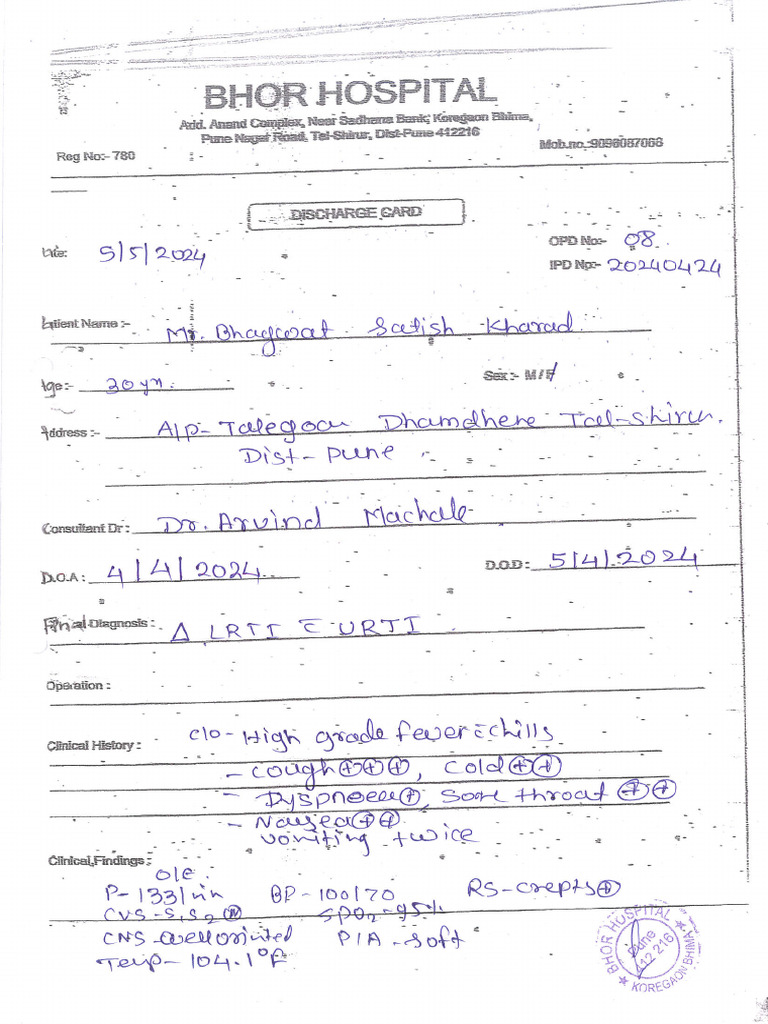 BHOR HOSPITAL
Add. Anand Complex, Near Sadhana Bank, Koregaon Bhima,
Pune Nagar Road, Tel-Shirur, Dist-Pune 412216
Mob.no.:9096087068
Reg No:- 780 :-
DISCHARGE CARD
Date: 5/5/2024
OPD No:- 08
IPD No:- 20240424
Patient Name :- Mr. Bhagwat Satish Kharad
Age :- 30 yr.
Sex :- M / F
Address :- A/p- Talegaon Dhamdhere Tal-Shirur.
Dist- Pune
Consultant Dr : Dr. Arvind Machale
D.O.A : 4/4/2024
D.O.D : 5/4/2024
Final Diagnosis : Δ LRTI c̄ URTI
Operation :
Clinical History : c/o - High grade fever c̄ chills
- cough ⊕⊕⊕, cold ⊕⊕
- Dyspnoea ⊕, Sore throat ⊕⊕
- Nausea ⊕⊕
vomiting twice
Clinical Findings :
o/e
P- 133/min BP- 100/70 RS- crepts ⊕
CVS- S1 S2 Ⓝ SPO2- 95%
CNS- well oriented P/A - soft
Temp- 104.1°F
BHOR HOSPITAL
Pune
412 216
KOREGAON BHIMA